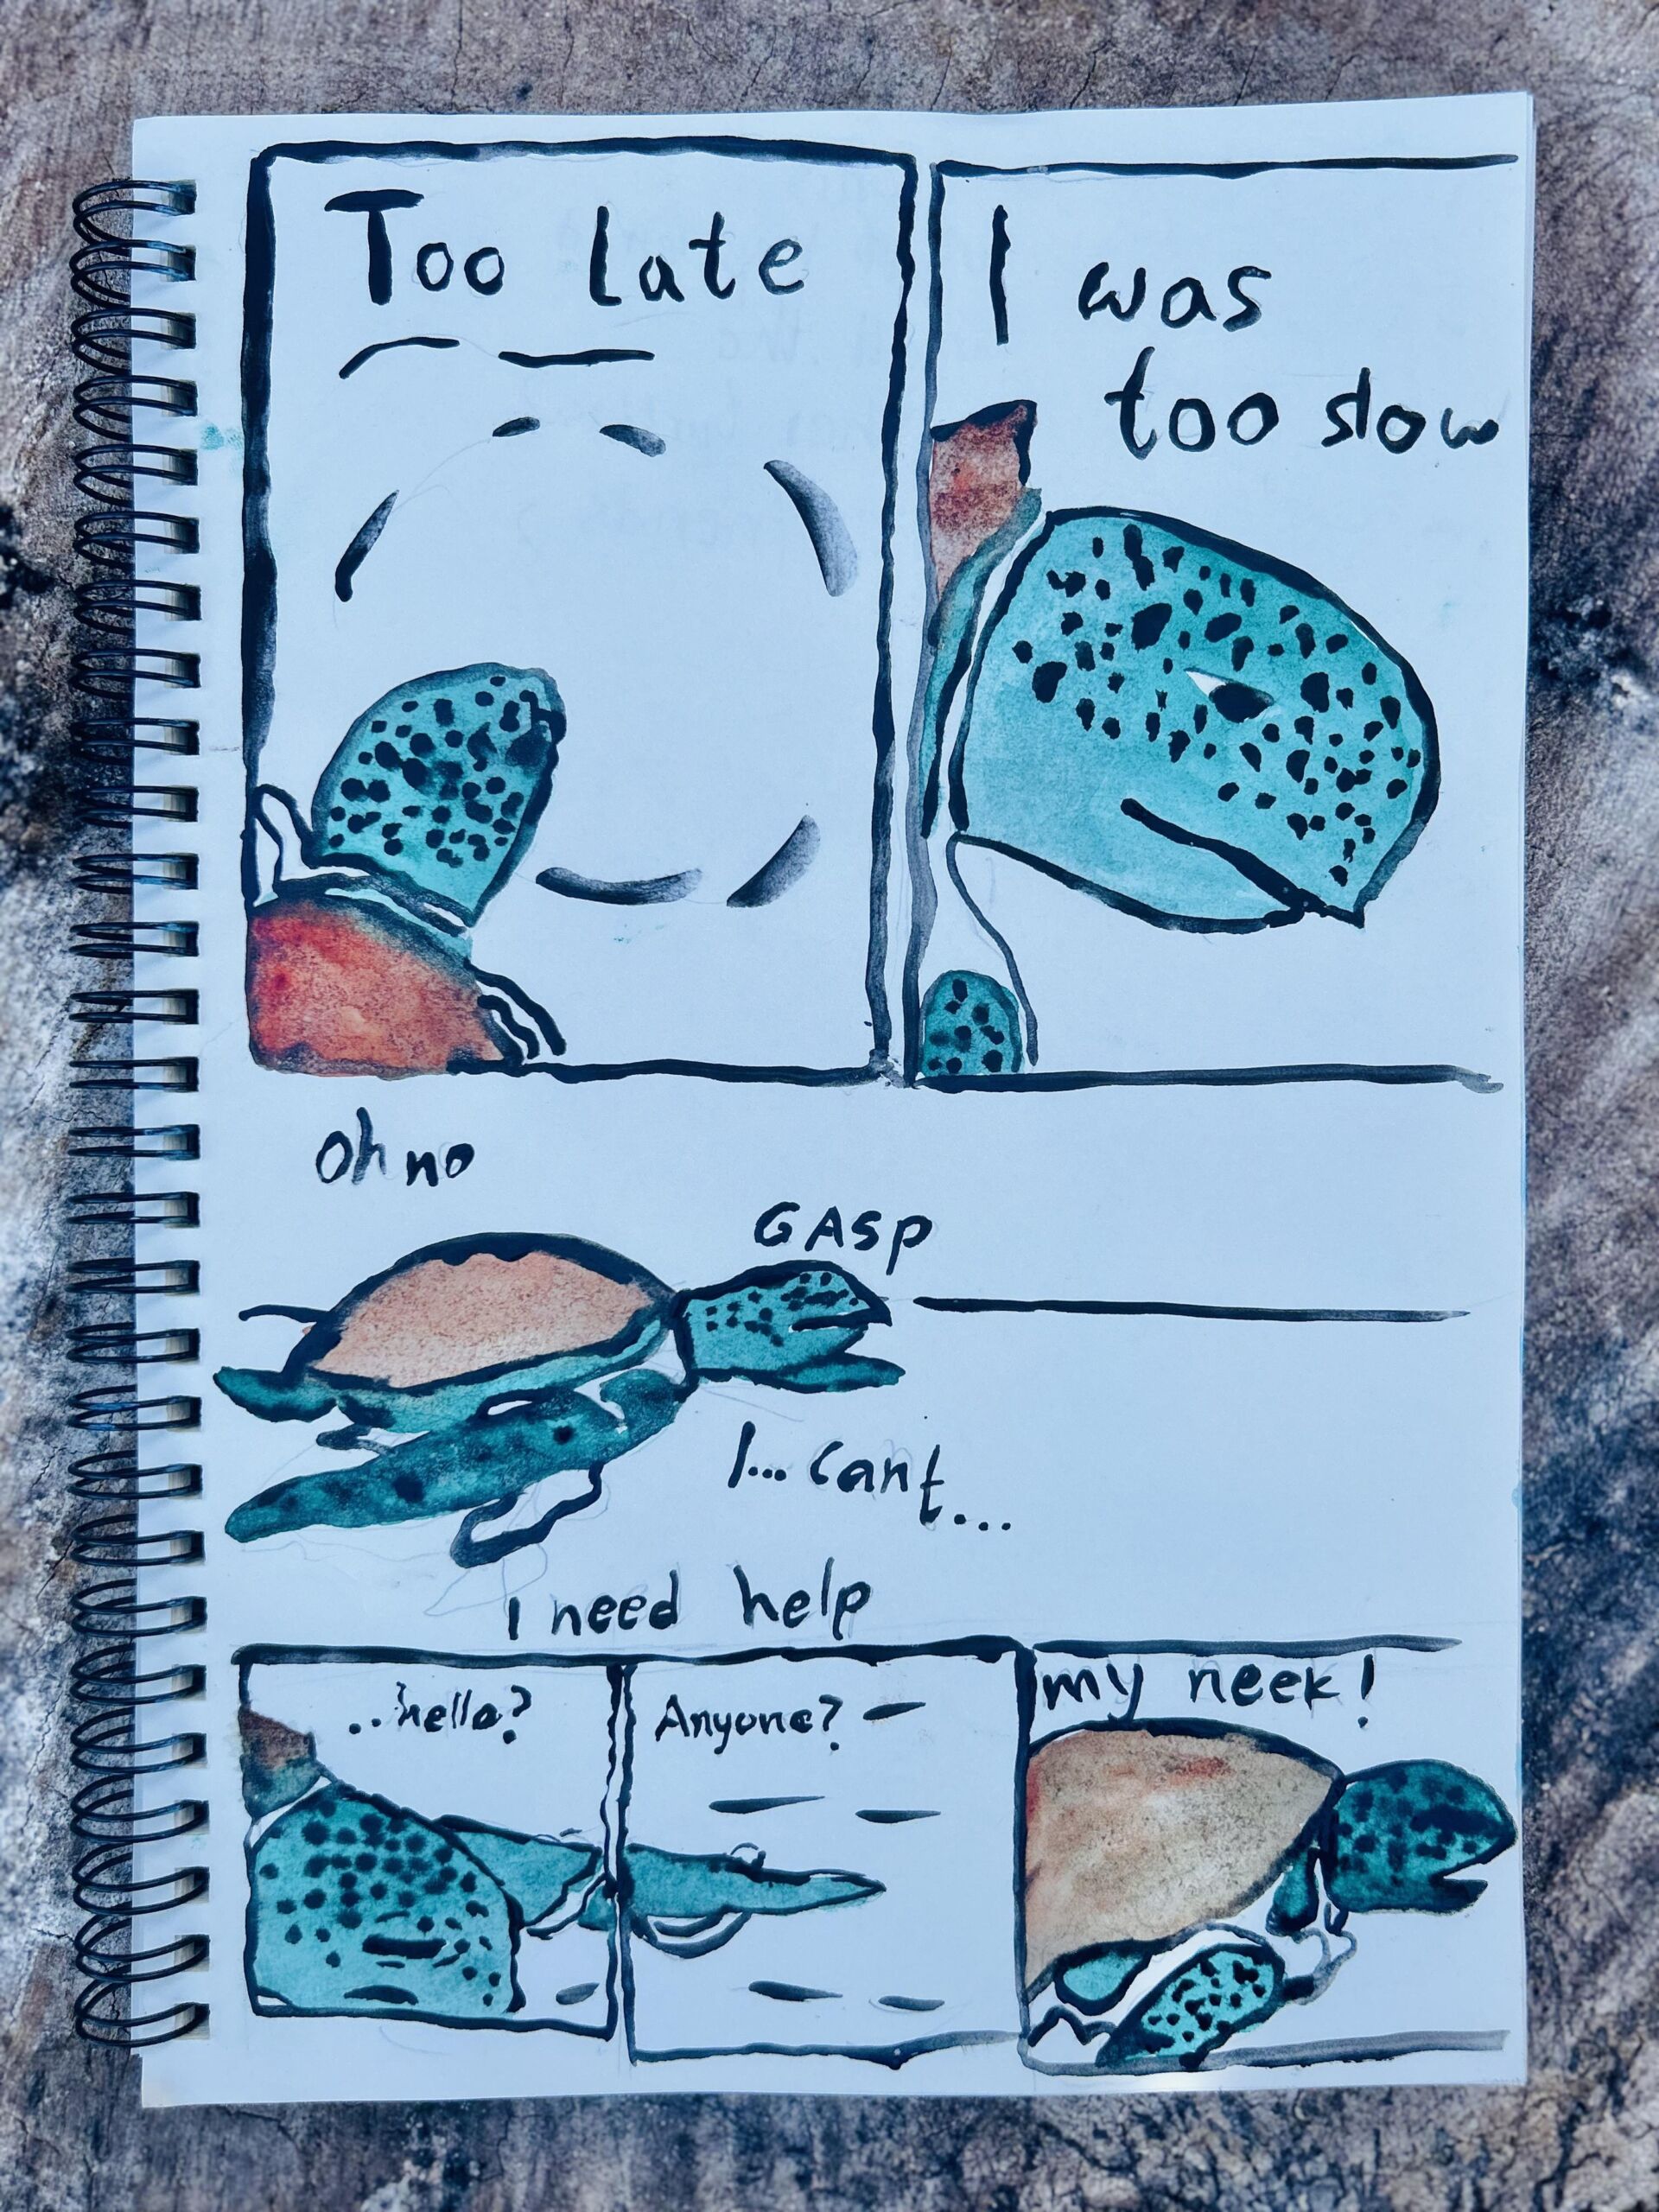 Too Late
I was
too slow
oh no
GASP
I... cant...
I need help
..hello?
Anyone?
my neek!